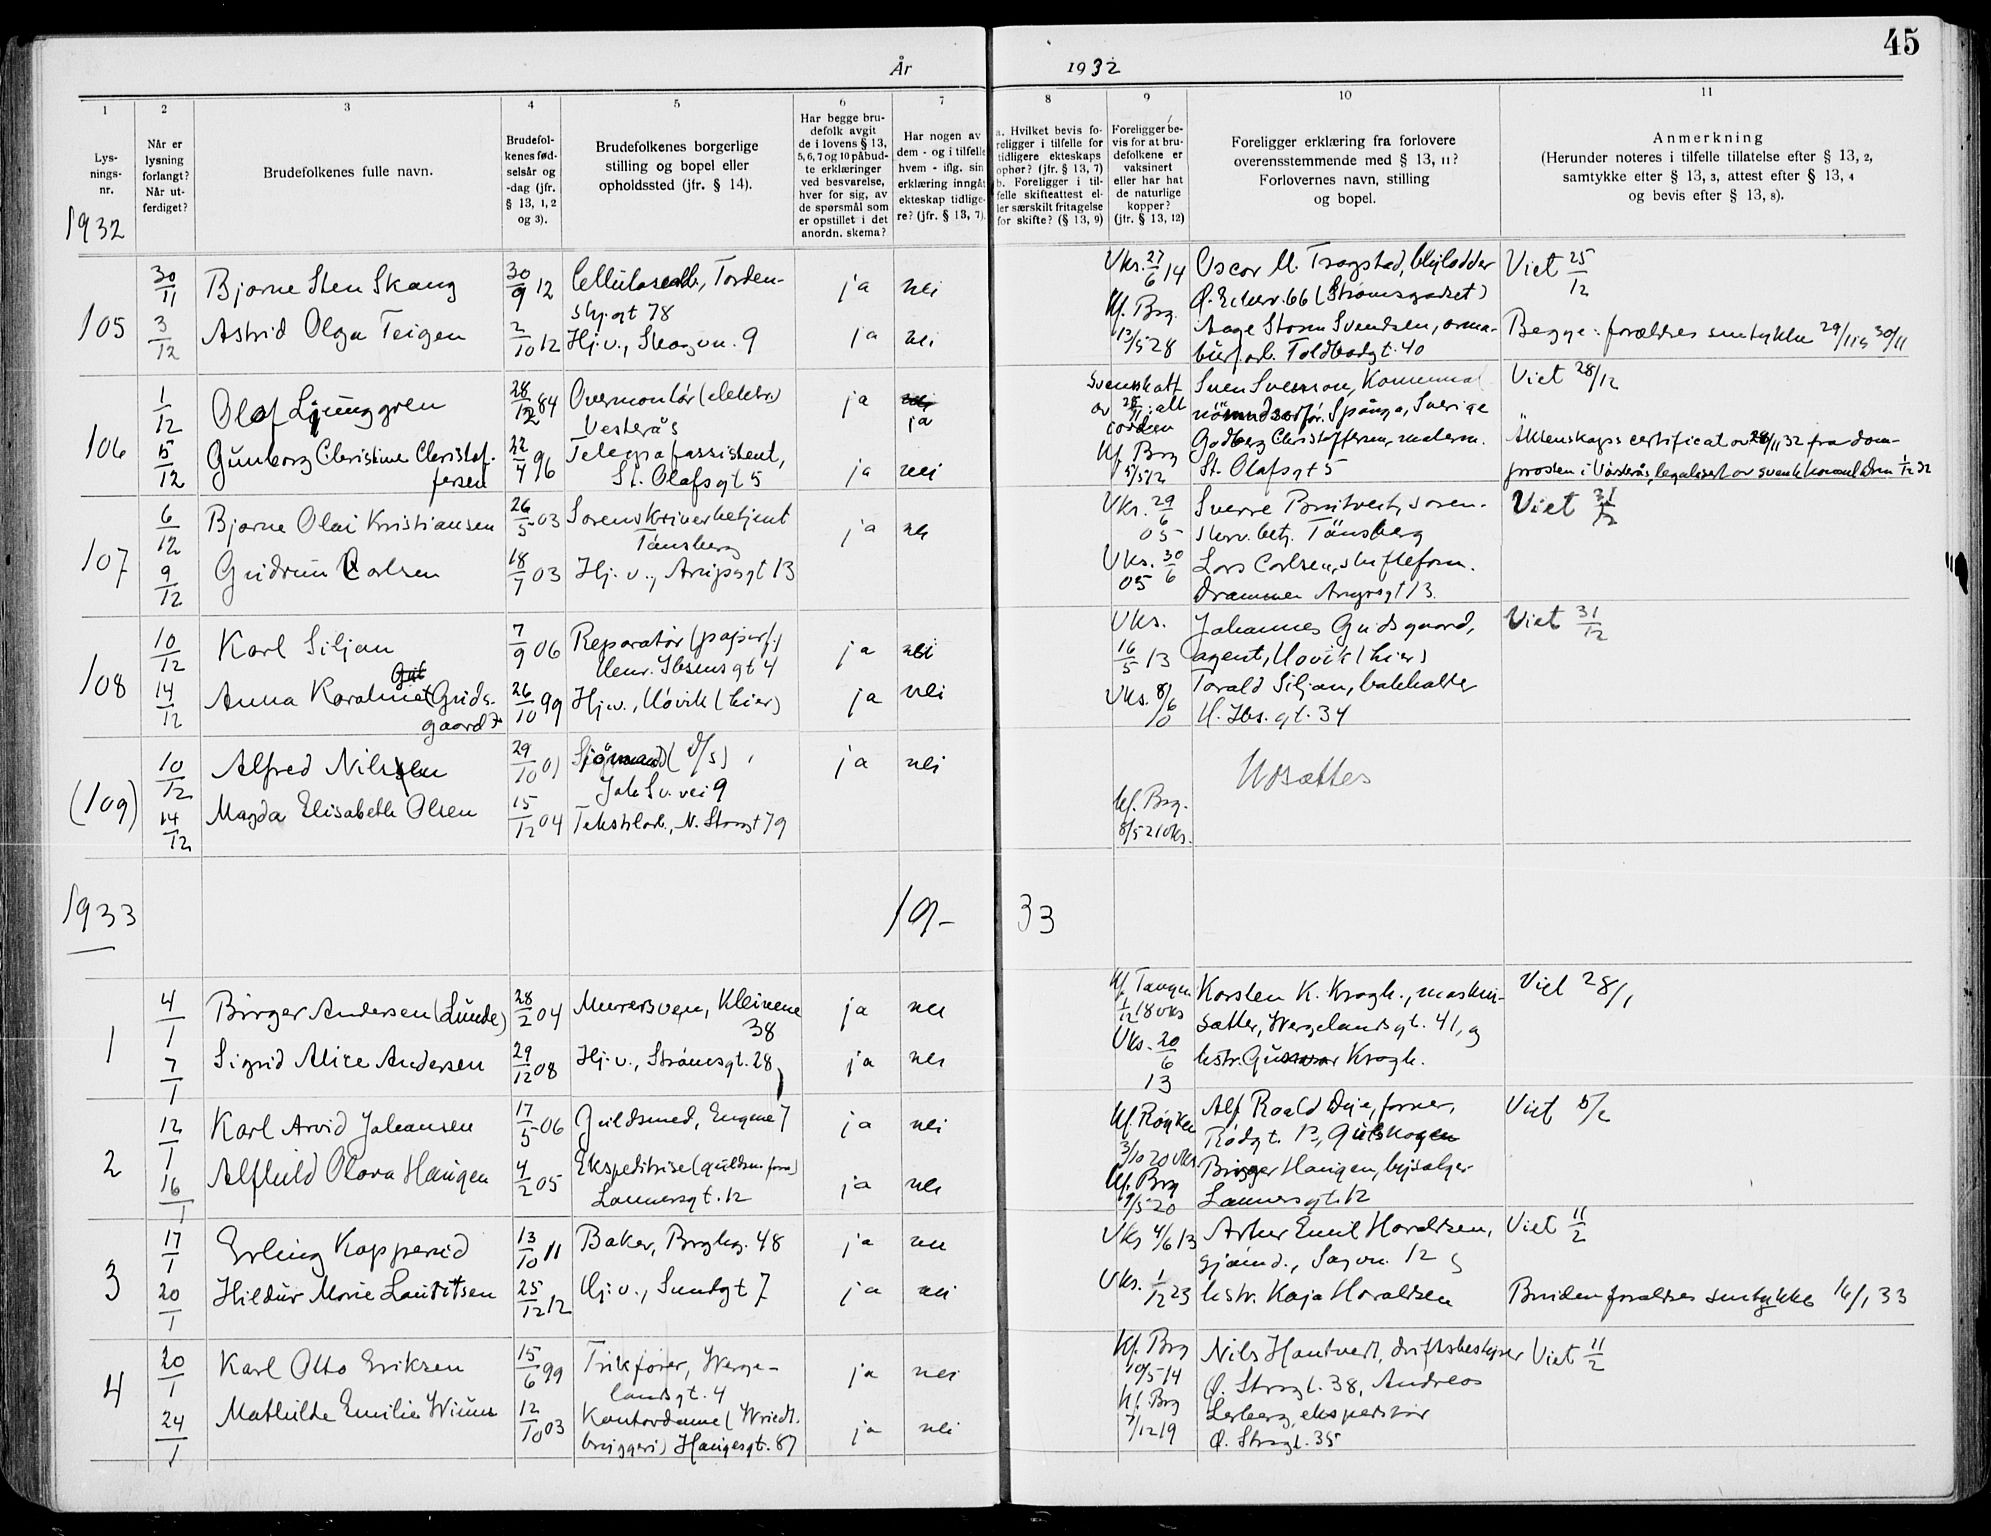 45
År 1932
1
2
3
4
5
6
7
8
9
10
11
Lys-
nings-
nr.
Når er
lysning
forlangt?
Når ut-
ferdiget?
Brudefolkenes fulle navn.
Brudefol-
kenes fød-
selsår og
-dag (jfr.
§ 13, 1, 2
og 3).
Brudefolkenes borgerlige
stilling og bopel eller
opholdssted (jfr. § 14).
Har begge bru-
defolk avgit
de i lovens § 13,
5, 6, 7 og 10 påbud-
te erklæringer
ved besvarelse,
hver for sig, av
de spørsmål som
er opstillet i det
anordn. skema?
Har nogen av
dem - og i tilfelle
hvem - iflg. sin
erklæring inngått
ekteskap tidlige-
re? (jfr. § 13, 7).
a. Hvilket bevis fo-
religger i tilfelle for
tidligere ekteskaps
ophør? (jfr. § 13, 7)
b. Foreligger i til-
felle skifteattest el-
ler særskilt fritagelse
for skifte? (§ 13, 9)
Foreligger be-
vis for at bru-
defolkene er
vaksinert
eller har hat
de naturlige
kopper?
(jfr. § 13, 12)
Foreligger erklæring fra forlovere
overensstemmende med § 13, 11?
Forlovernes navn, stilling
og bopel.
Anmerkning
(Herunder noteres i tilfelle tillatelse efter § 13, 2,
samtykke efter § 13, 3, attest efter § 13, 4
og bevis efter § 13, 8).
1932
105
30/11
Bjarne Sten Skaug
30/9 12
Torden-
skj.gt 78
ja
nei
Vks. 27/6 14
Oscar M. Tragstad,
(Strømsgodset)
Viet 25/12
3/12
Astrid Olga Teigen
2/10 12
Hj.v., Skogvn. 9
ja
nei
Kf. Brg.
13/5 28
Aage Storm Svendsen,
Toldbodgt. 40
Begge forældres samtykke 29/11 30/11
106
1/12
Olof Ljunggren
28/12 84
Overmontør (elektr.)
Vesterås
ja
ja
Sven Svenson, Kommunal
Spånga, Sverige
Viet 28/12
5/12
Gunborg Christine Christof-
fersen
22/4 96
Telegrafassistent,
St. Olafsgt 5
ja
nei
Kf. Brg
Godberg Christoffersen,
St. Olafsgt 5
Äktenskaps certificat av 28/11 32 fra dom-
prosten i Västerås, legaliset av svensk konsul Drm 1/12 32
107
6/12
Bjarne Olai Kristiansen
26/5 03
Sorenskriverbetjent
Tønsberg
ja
nei
Vks. 29/6
05
Sverre soren-
skrv. betj. Tönsberg
Viet 31/12
9/12
Gudrun Carlsen
18/7 03
Hj. v., Arupsgt 13
Vks. 30/6
05
Lars Carlsen, skifteform.
Drammen Arupsgt 13.
108
10/12
Karl Siljan
7/9 06
Reparatør (papirf.)
Henr. Ibsensgt 4
ja
nei
Vks.
16/5 13
Johannes Gudsgaard,
agent, Hovik (Lier)
Viet 31/12
14/12
Anna Karoline Guds-
gaard
26/10 99
Hj.v., Hövik (Lier)
ja
nei
Vks. 8/6
Torald Siljan, bokholder
H. Ibs. gt. 34
(109)
10/12
Alfred Nilsen
29/10 01
Sjømand (d/s)
ja
nei
Utsættes
14/12
Magda Elisabeth Olsen
15/12 04
Tekstilarb., N. Storgt 79
Kf. Brg.
8/5 21 vks.
1933
19-33
1
4/1
Birger Andersen (Lunde)
28/2 04
Murersvenn, Kleivene
38
ja
nei
Kf. Tangen
1/12 18 vks
Karsten K. Krogh., maskin-
sætter, Wergelandsgt. 41, og
Viet 28/1
7/1
Sigrid Alice Andersen
29/12 08
Hj.v., Strømsgt. 28
ja
nei
Vks. 20/6
13
hstr. Krogh.
2
12/1
Karl Arvid Johansen
17/5 06
Guldsmed, Engene 7
ja
nei
Kf. Røyken
3/10 20 vks.
Alf Roald
Rødgt. 13, Gulskogen
Viet 5/2
16/1
Alfhild Olava Haugen
4/2 05
Ekspeditrise (guldsm. forr.)
Lammersgt. 12
ja
nei
Kf. Brg
9/5 20
Birger Haugen,
Lammersgt. 12
3
17/1
Erling Kopperud
13/10 11
Baker, Brghg. 48
ja
nei
Vks 4/6 13
Arthur Emil Haraldsen,
sjömd., Sagvn. 12 og
Viet 11/2
20/1
Hildur Marie Lauritsen
25/12 12
Hj.v., Sundgt 7
ja
nei
Vks. 1/12 23
hstr. Kaja Haraldsen
Brudens forældres samtykke 16/1 33
4
20/1
Karl Otto Eriksen
15/6 99
Trikfører, Werge-
landsgt. 4
ja
nei
Kf. Brg
10/5 14
Nils Hantvedt, driftsbestyrer
Ø. Storgt. 38, Andreas
Viet 11/2
24/1
Mathilde Emilie Wium
12/10 03
Kontordame (Wriedt.
bryggeri) Haugesgt. 87
ja
nei
Kf. Brg
7/12 19
Lerberg, ekspeditør
Ø. Storgt. 35